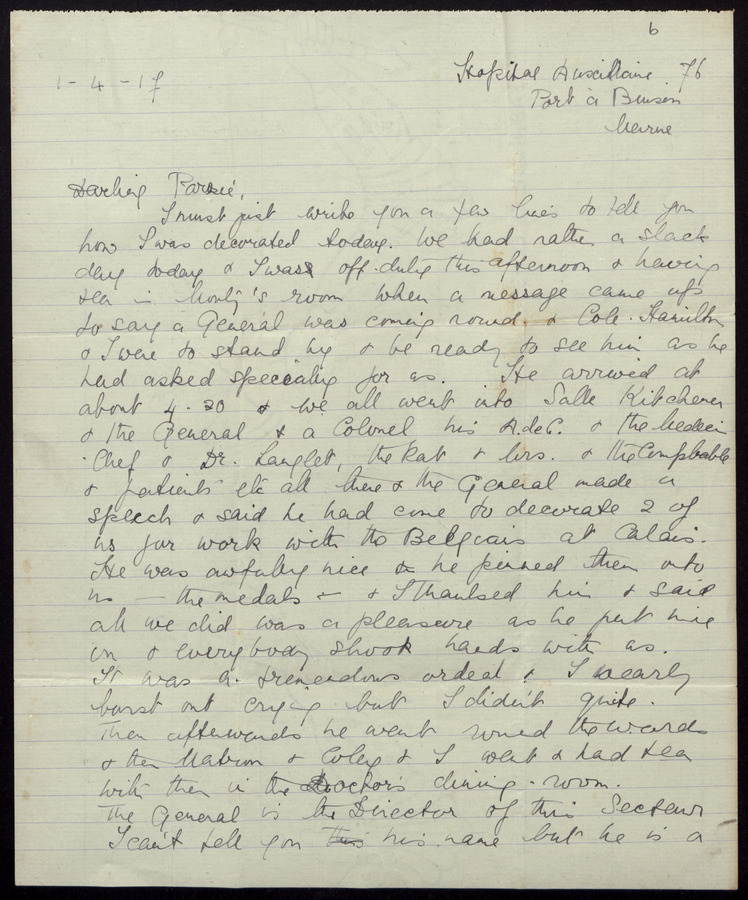 6
1-4-17
Hopital Auxilliaire 76
Port à Binson
Marne
Darling
I must just write you a few lines to tell you
how I was decorated today. We had rather a slack
day today & I was off-duty this afternoon & having
tea in Monty's room when a message came up
to say a General was coming round, & Cole-Hamilton
& I were to stand by & be ready to see him as he
had asked specially for us. He arrived at
about 4.30 & we all went into Salle Kitchener
& the General & a Colonel his A.de C. & the Medecin
-Chef & Dr. Langlet, the Rat & Mrs. & the Comptable
& patients etc all there & the General made a
speech & said he had come to decorate 2 of
us for work with the Belgians at Calais.
He was awfully nice & he pinned them onto
us — the medals — & I thanked him & said
all we did was a pleasure as he put mine
on & everybody shook hands with us.
It was a tremendous ordeal & I nearly
burst out crying but I didn't quite.
Then afterwards he went round the wards
& then Matron & Coley & I went & had tea
with them in the Doctor's dining-room.
The General is the Director of this Secteur
I can't tell you his name but he is a